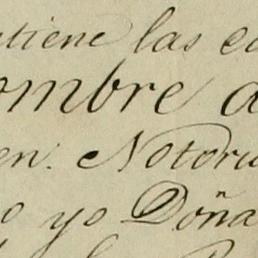 tiene las
ombre a
en. Notoru
o yo Doña